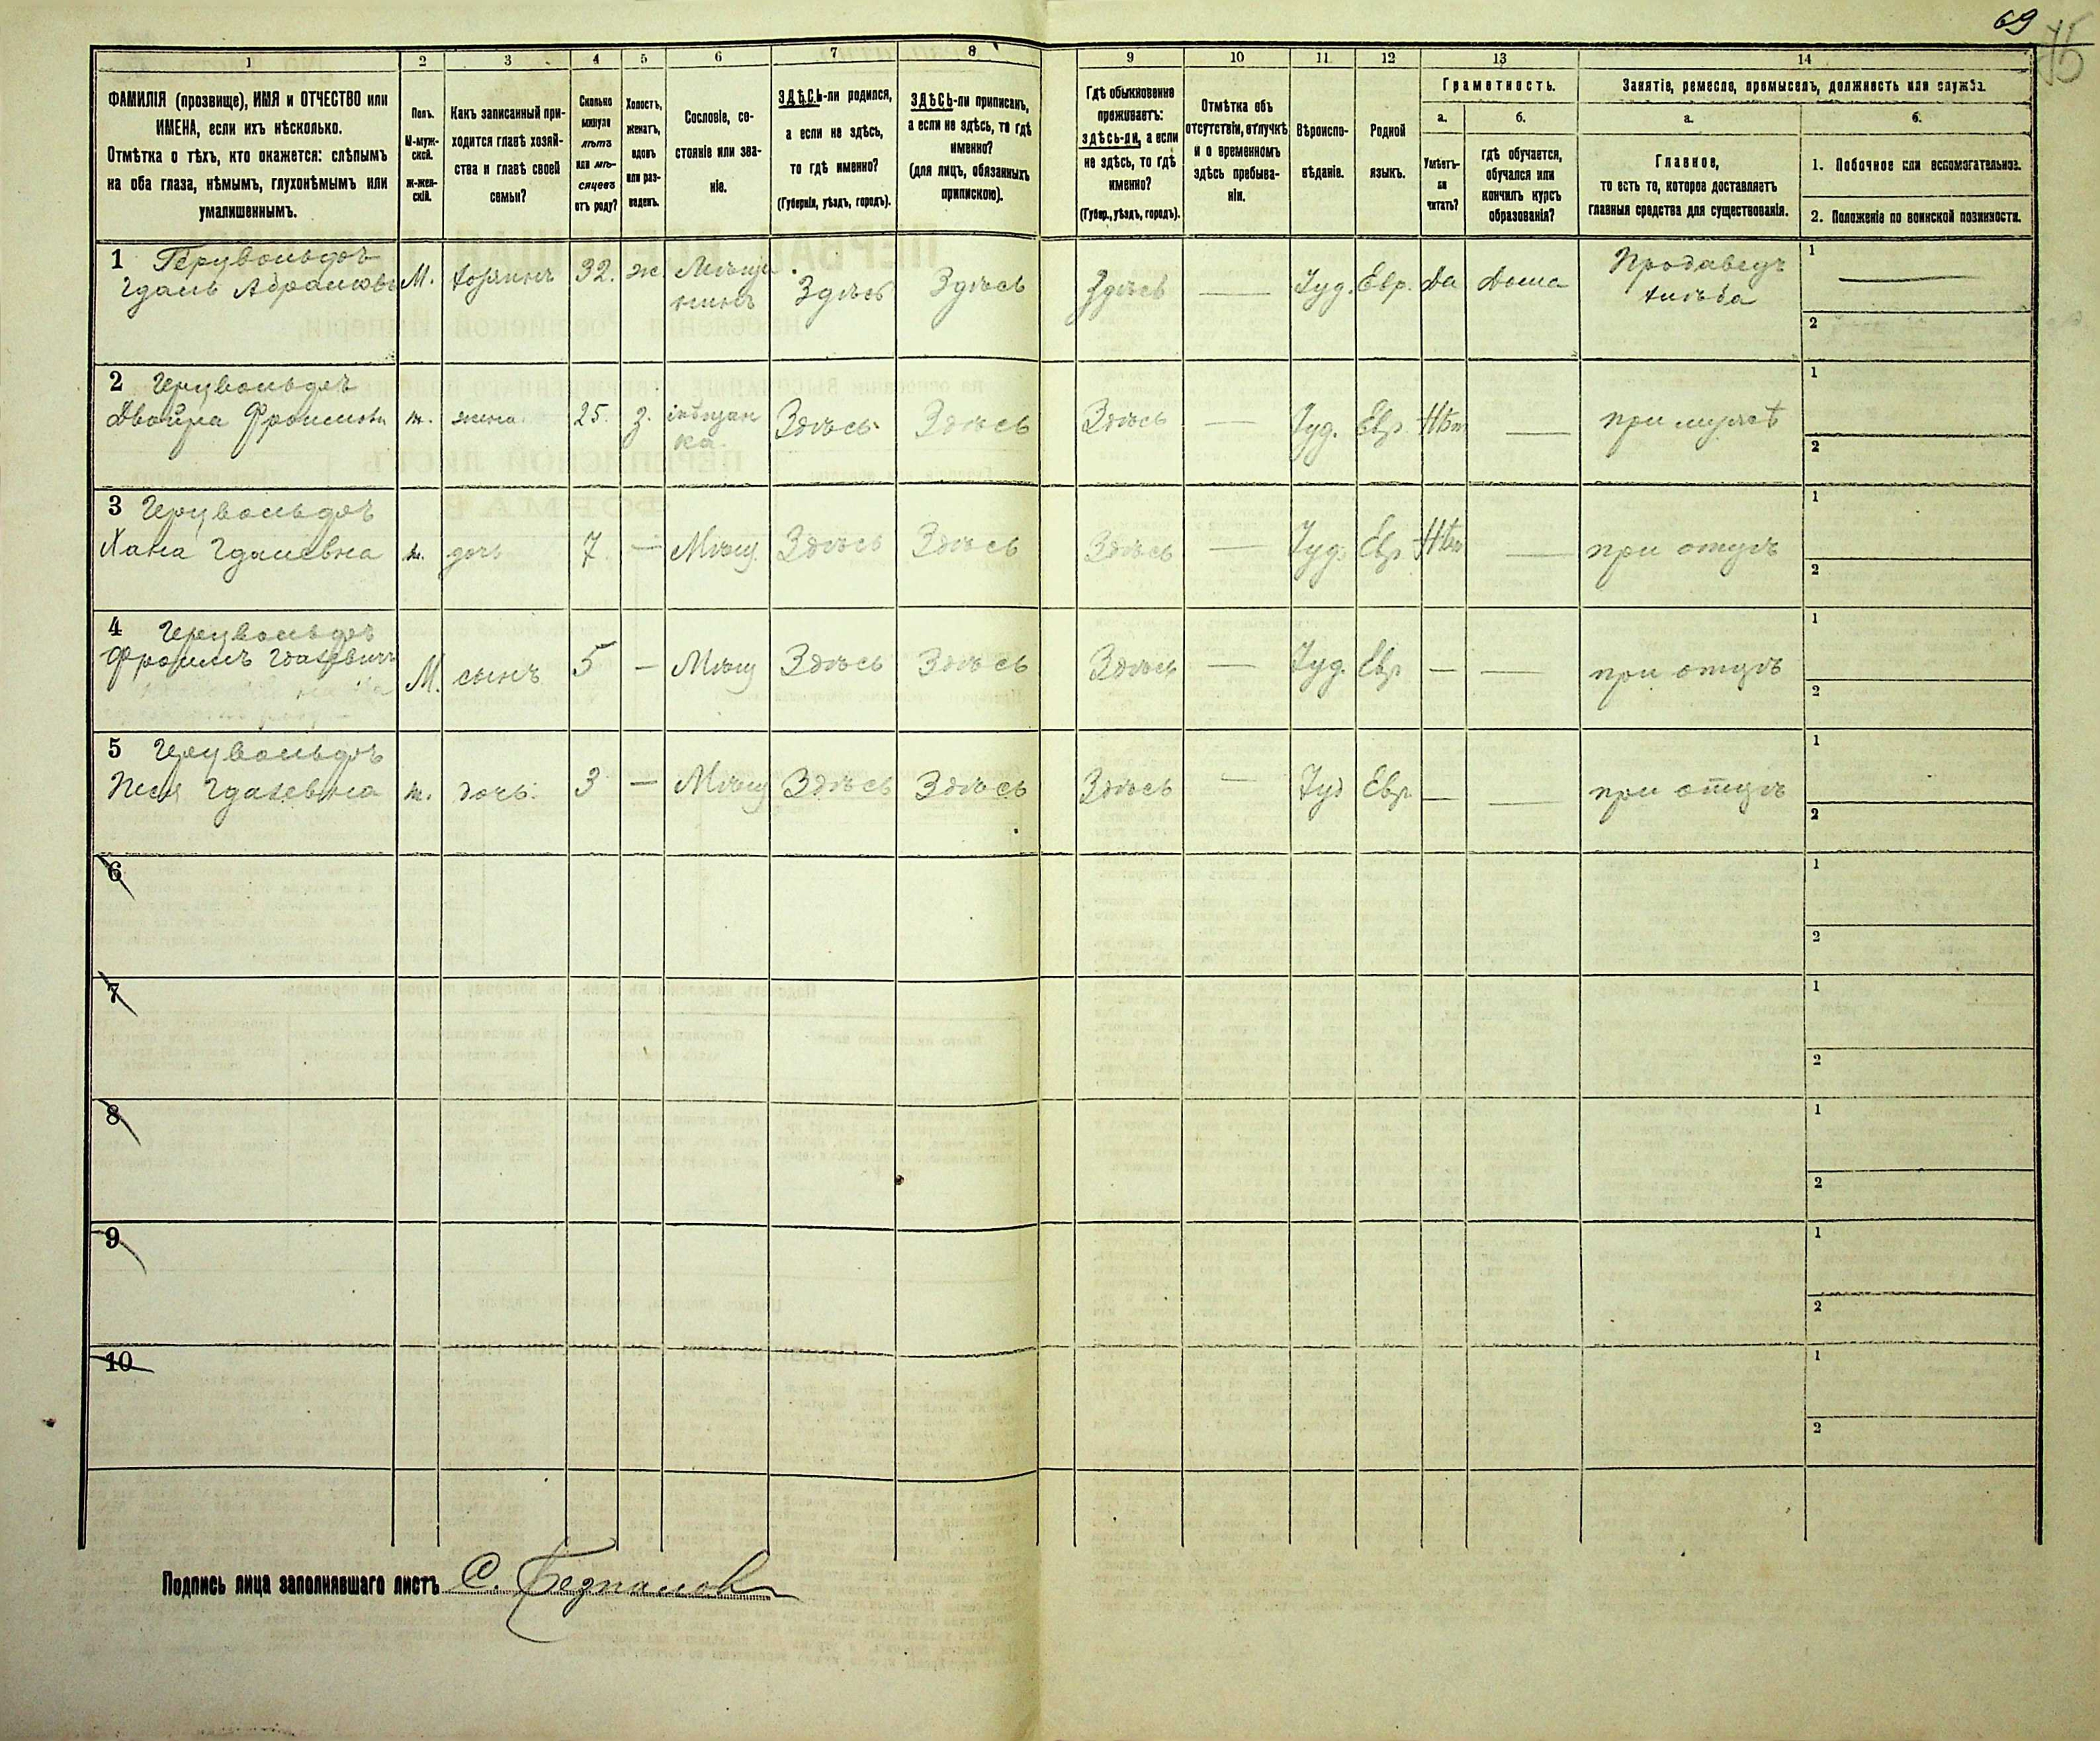 69
75
1
2
3
4
5
6
7
8
9
10
11
12
13
14
ФАМИЛІЯ (прозвище), ИМЯ и ОТЧЕСТВО или
ИМЕНА, если ихъ нѣсколько.
Отмѣтка о тѣхъ, кто окажется: слѣпымъ
на оба глаза, нѣмымъ, глухонѣмымъ или
умалишеннымъ.
Полъ.
М-муж-
ской.
Ж-жен-
скій.
Какъ записанный при-
ходится главѣ хозяй-
ства и главѣ своей
семьи?
Сколько
минуло
лѣтъ
или мѣ-
сяцевъ
отъ роду?
Холостъ,
женатъ,
вдовъ
или раз-
веденъ.
Сословіе, со-
стояніе или зва-
ніе.
ЗДѢСЬ-ли родился,
а если не здѣсь,
то гдѣ именно?
(Губернія, уѣздъ, городъ).
ЗДѢСЬ-ли приписанъ,
а если не здѣсь, то гдѣ
именно?
(для лицъ, обязанныхъ
припискою).
Гдѣ обыкновенно
проживаетъ:
здѣсь-ли, а если
не здѣсь, то гдѣ
именно?
(Губер., уѣздъ, городъ).
Отмѣтка объ
отсутствіи, отлучкѣ
и о временномъ
здѣсь пребыва-
ніи.
Вѣроиспо-
вѣданіе.
Родной
языкъ.
Грамотность.
а.
Умѣетъ-
ли
читать?
б.
гдѣ обучается,
обучался или
кончилъ курсъ
образованія?
Занятіе, ремесло, промыселъ, должность или служба.
а.
Главное,
то есть то, которое доставляетъ
главныя средства для существованія.
б.
1. Побочное или вспомогательное.
2. Положеніе по воинской повинности.
1
М.
хозяинъ
32.
ж.
Мѣща
нинъ
Здѣсь
Здѣсь
Здѣсь
Іуд.
Евр.
Да
Дома
Продавецъ
хлѣба
1
2
2
ж.
жена
25.
з.
ка
Здѣсь
Здѣсь
Здѣсь
Іуд.
Евр.
Нѣт
при мужѣ
1
2
3
Хана
ж.
дочь
7
Мѣщ.
Здѣсь
Здѣсь
Здѣсь
Іуд.
Евр
Нѣт
при отцѣ
1
2
4
М.
сынъ
5
Мѣщ
Здѣсь
Здѣсь
Здѣсь
Іуд.
Евр
при отцѣ
1
2
5
ж.
дочь.
3
Мѣщ
Здѣсь
Здѣсь
Здѣсь
Іуд
Евр.
при отцѣ
1
2
6
1
2
7
1
2
8
1
2
9
1
2
10
1
2
Подпись лица заполнявшаго листъ С.